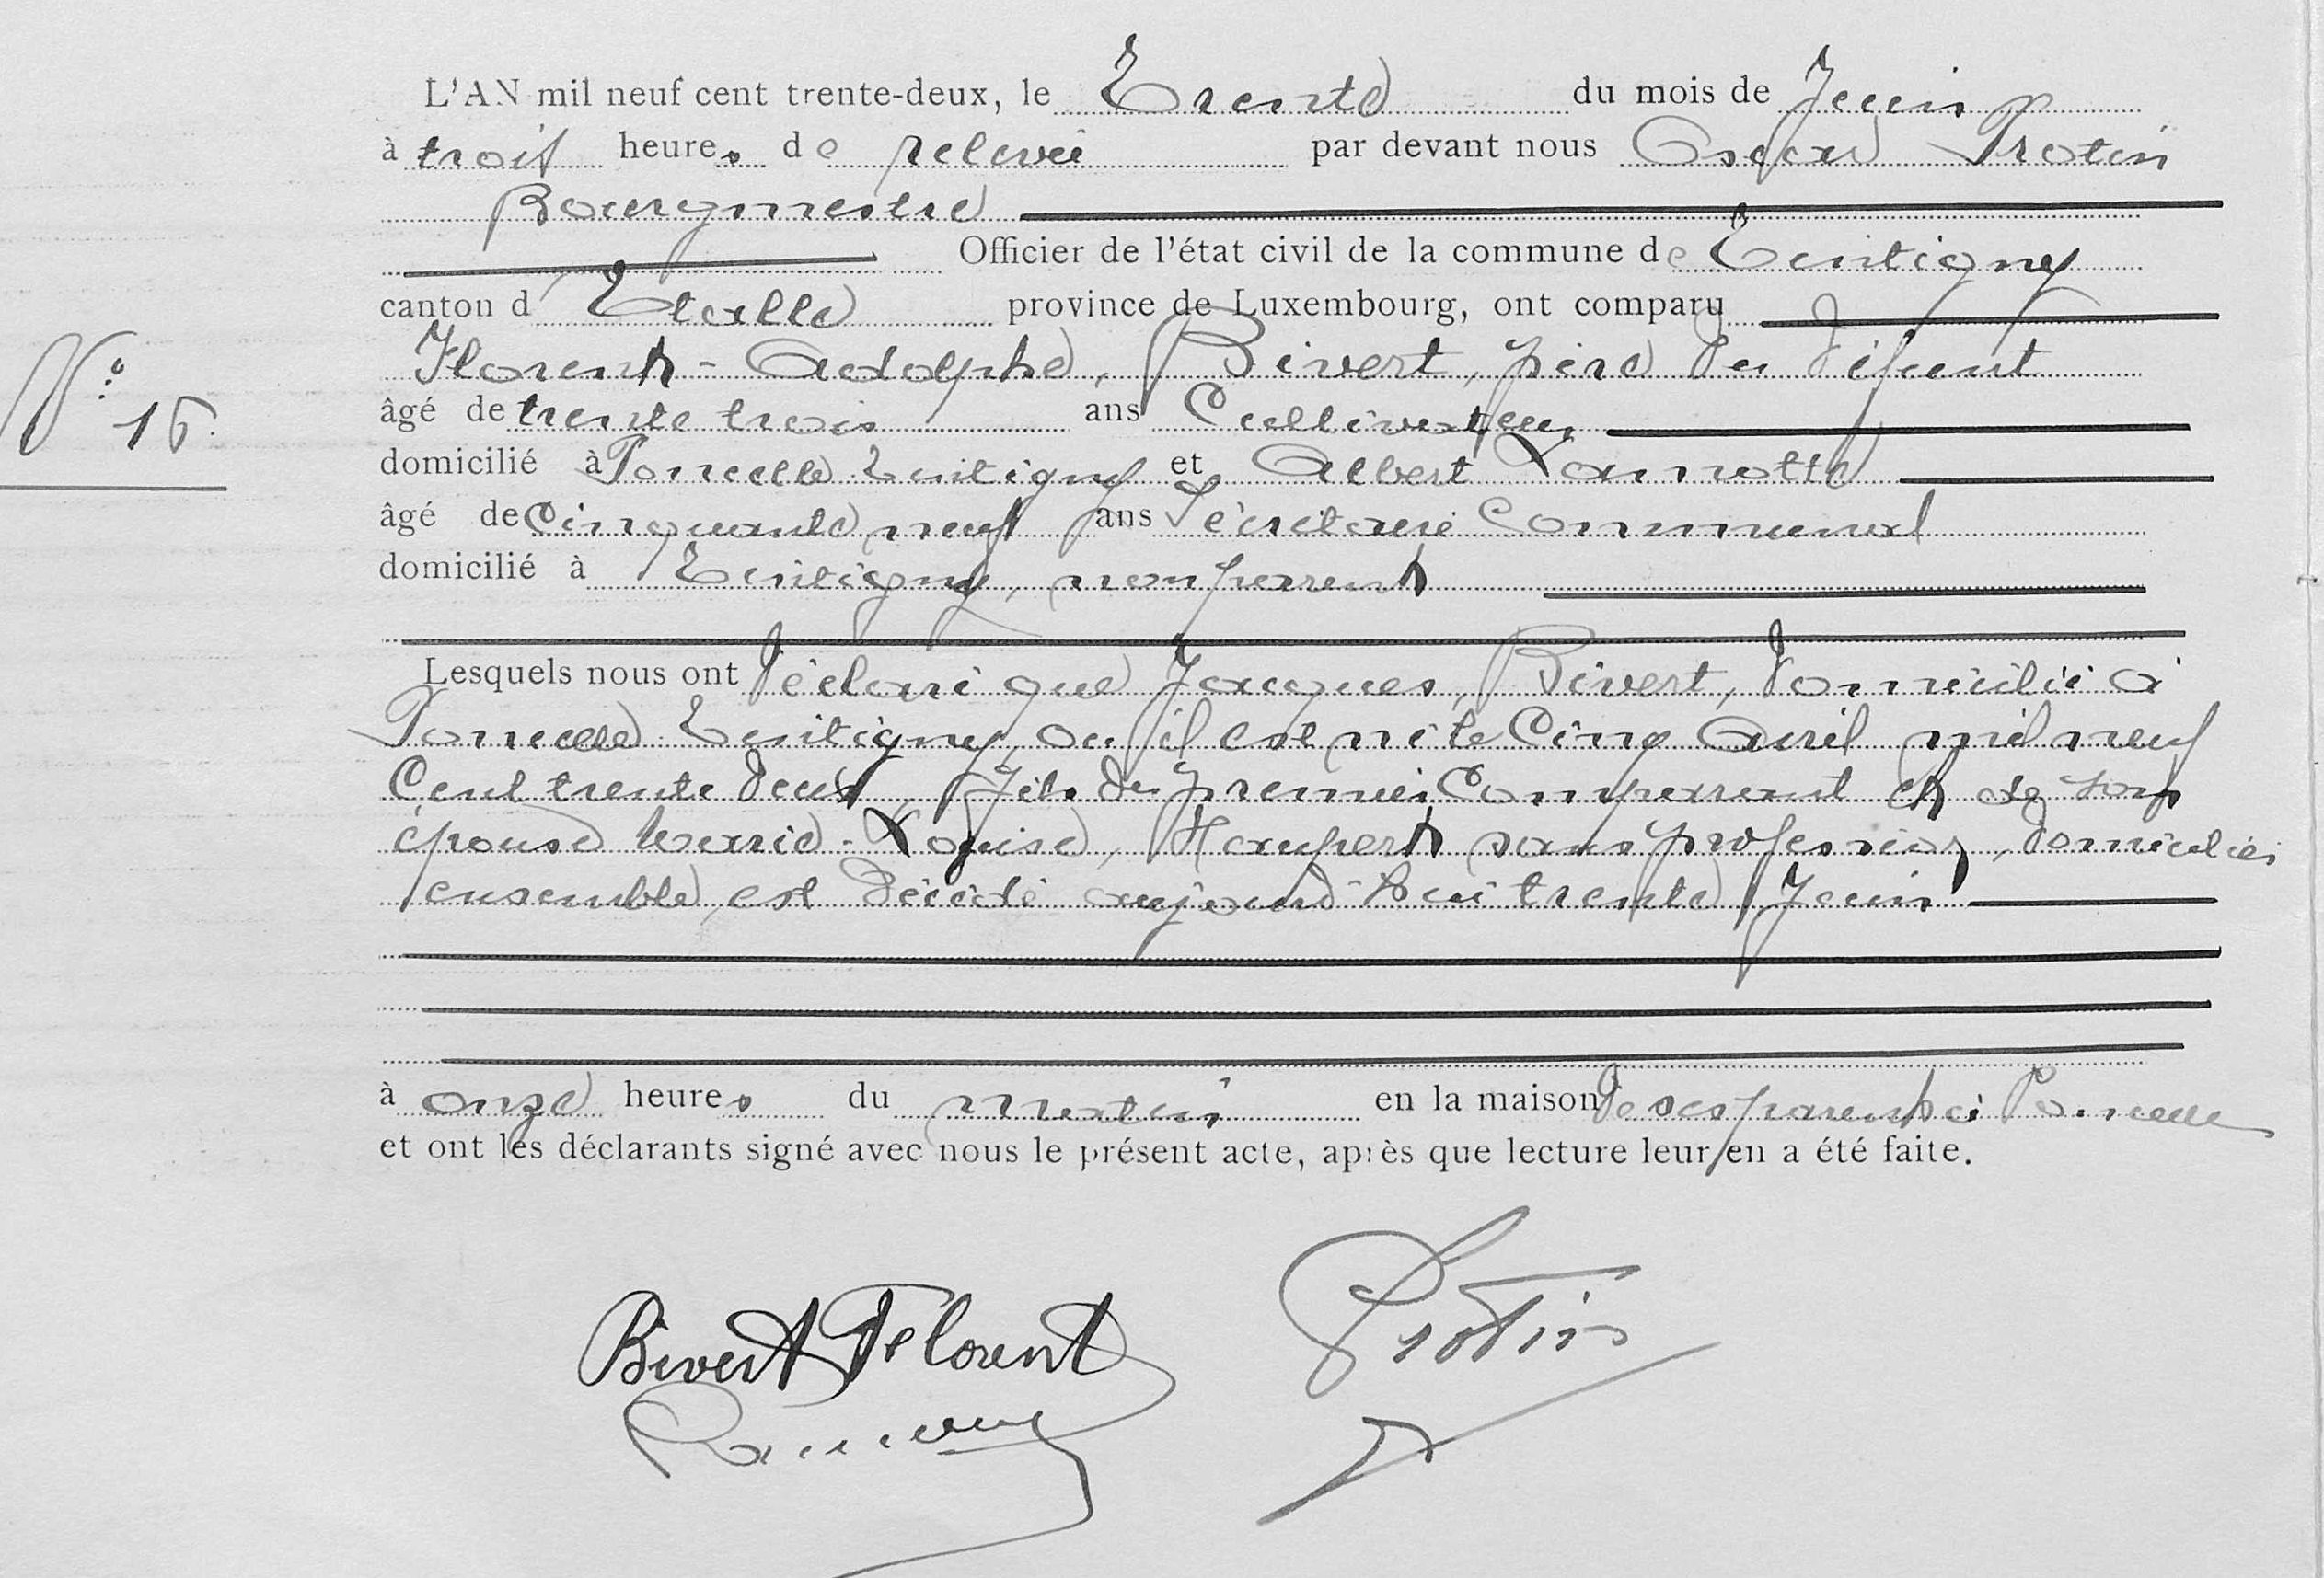 L'AN mil neuf cent trente-deux, le Trente du mois de Juin
à trois heures de relevée par devant nous Oscar Protin
Bourgmestre
Officier de l'état civil de la commune de Tintigny
canton d'Etalle province de Luxembourg, ont comparu
Florent-Adolphe, Bivert, père du défunt
âgé de trente trois ans Cultivateur
N° 15.
domicilié à Poncelle Tintigny et Albert Lamotte
âgé de cinquante neuf ans Sécrétaire Communal
domicilié à Tintigny, non parent
Lesquels nous ont déclaré que Jacques, Bivert, domicilié à
Poncelle Tintigny, où il est né le Cinq Avril mil neuf
Cent trente deux, fils du premier Comparant et de son
épouse Marie-Louise, Haupert sans profession, domiciliés
ensemble, est décédé aujourd'hui trente Juin
à onze heures du matin en la maison de ses parents à Poncelle
et ont les déclarants signé avec nous le présent acte, après que lecture leur en a été faite.
Bivert Florent
Protin